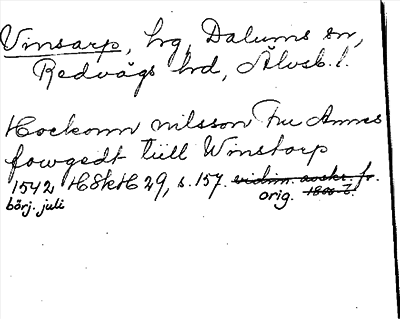 Vinsarp, hg, Dalums sn,
Redvägs hd, Älvsb. l.
Hoekonn nilsson Fru Annes
fowgedt tiill Winstorp
1542 HSkH 29, s. 157. vidim. avskr. fr.
börj. juli orig. 1800-t.